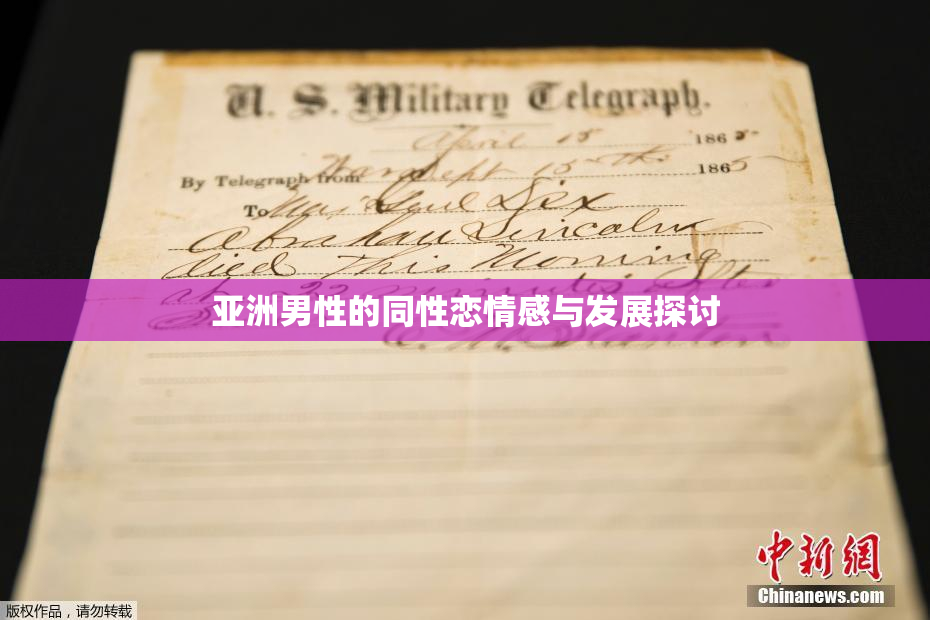 U. S. Military Telegraph.
April 15 1865
By Telegraph from War Dept 15th 1865
To Maj Genl Dix
Abraham Lincoln
died This Morning
at 22 minutes after
亚洲男性的同性恋情感与发展探讨
中新網
Chinanews.com
版权作品,请勿转载